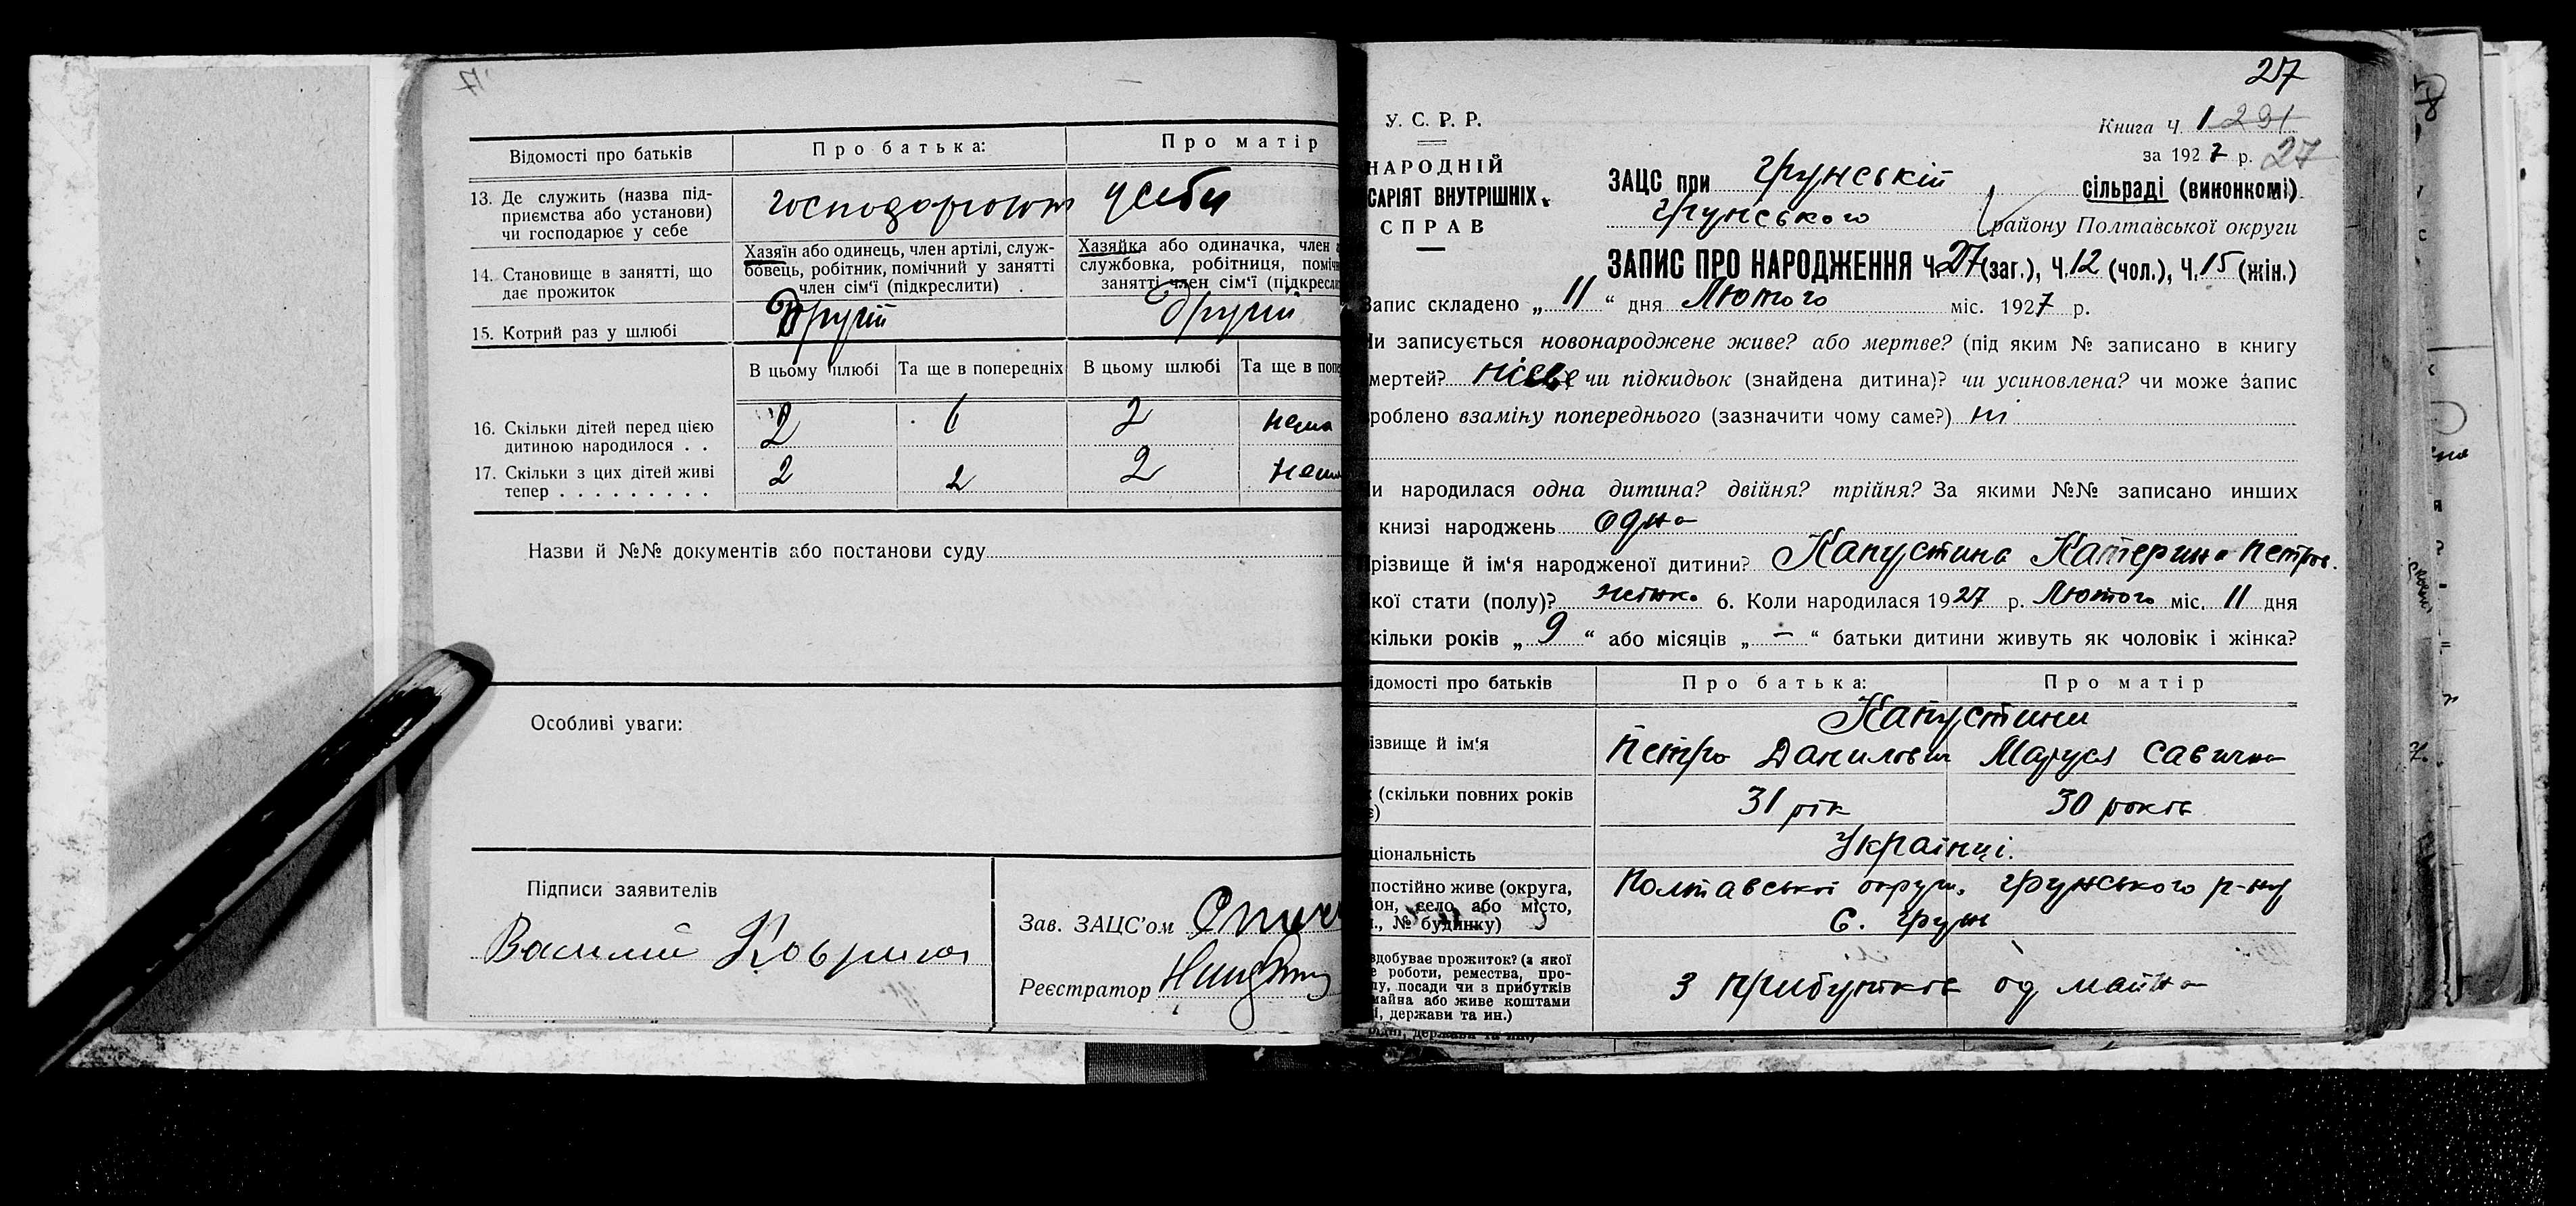 Відомості про батьків
Про батька:
Про матір
13. Де служить (назва підприємства або установи) чи господарює у себе
господарюют у себи
14. Становище в занятті, що дає прожиток
Хазяїн або одинець, член артілі, служ-
бовець, робітник, помічний у занятті
член сім'ї (підкреслити)
Хазяйка або одиначка, член
службовка, робітниця,
занятті член сім'ї
15. Котрий раз у шлюбі
Другий
Другий
В цьому шлюбі
Та ще в попередніх
В цьому шлюбі
Та ще в
16. Скільки дітей перед цією
дитиною народилося . .
2
2
нема
17. Скільки з цих дітей живі
тепер . . . . . . . . .
2
2
2
нема
Назви й №№ документів або постанови суду
Особливі уваги:
Підписи заявителів
Василий
Зав. ЗАЦС'ом
Реєстратор
27
У. С. Р. Р.
НАРОДНІЙ
САРІЯТ ВНУТРІШНІХ
СПРАВ
Книга Ч. 1 291
за 1927 р. 27
ЗАЦС при Грунській сільраді (виконкомі)
Грунського району Полтавської округи
ЗАПИС ПРО НАРОДЖЕННЯ Ч. 27 (заг.), Ч. 12 (чол.), Ч. 15 (жін.)
Запис складено „11“ дня Лютого міс. 1927 р.
Чи записується новонароджене живе? або мертве? (під яким № записано в книгу
смертей? чи підкидьок (знайдена дитина)? чи усиновлена? чи може запис
зроблено взаміну попереднього (зазначити чому саме?) ні
Чи народилася одна дитина? двійня? трійня? За якими №№ записано инших
книзі народжень одна
Прізвище й ім'я народженої дитини? Капустина Катерина Петров.
якої стати (полу)? жінк. 6. Коли народилася 1927 р. Лютого міс. 11 дня
Скільки років „9“ або місяців „—“ батьки дитини живуть як чоловік і жінка?
Відомості про батьків
Про батька:
Про матір
Капустини
ізвище й ім'я
Петро Данилович
Маруся Савична
(скільки повних років
31 рік
30 років
ціональність
Українці.
постійно живе (округа,
он, село або місто,
№ будинку)
Полтавської округи, Грунського р-ну
с. Грунь
здобуває прожиток? (з якої
роботи, ремества, про-
посади чи з прибутків
майна або живе коштами
держави та ин.)
З прибутків од майна